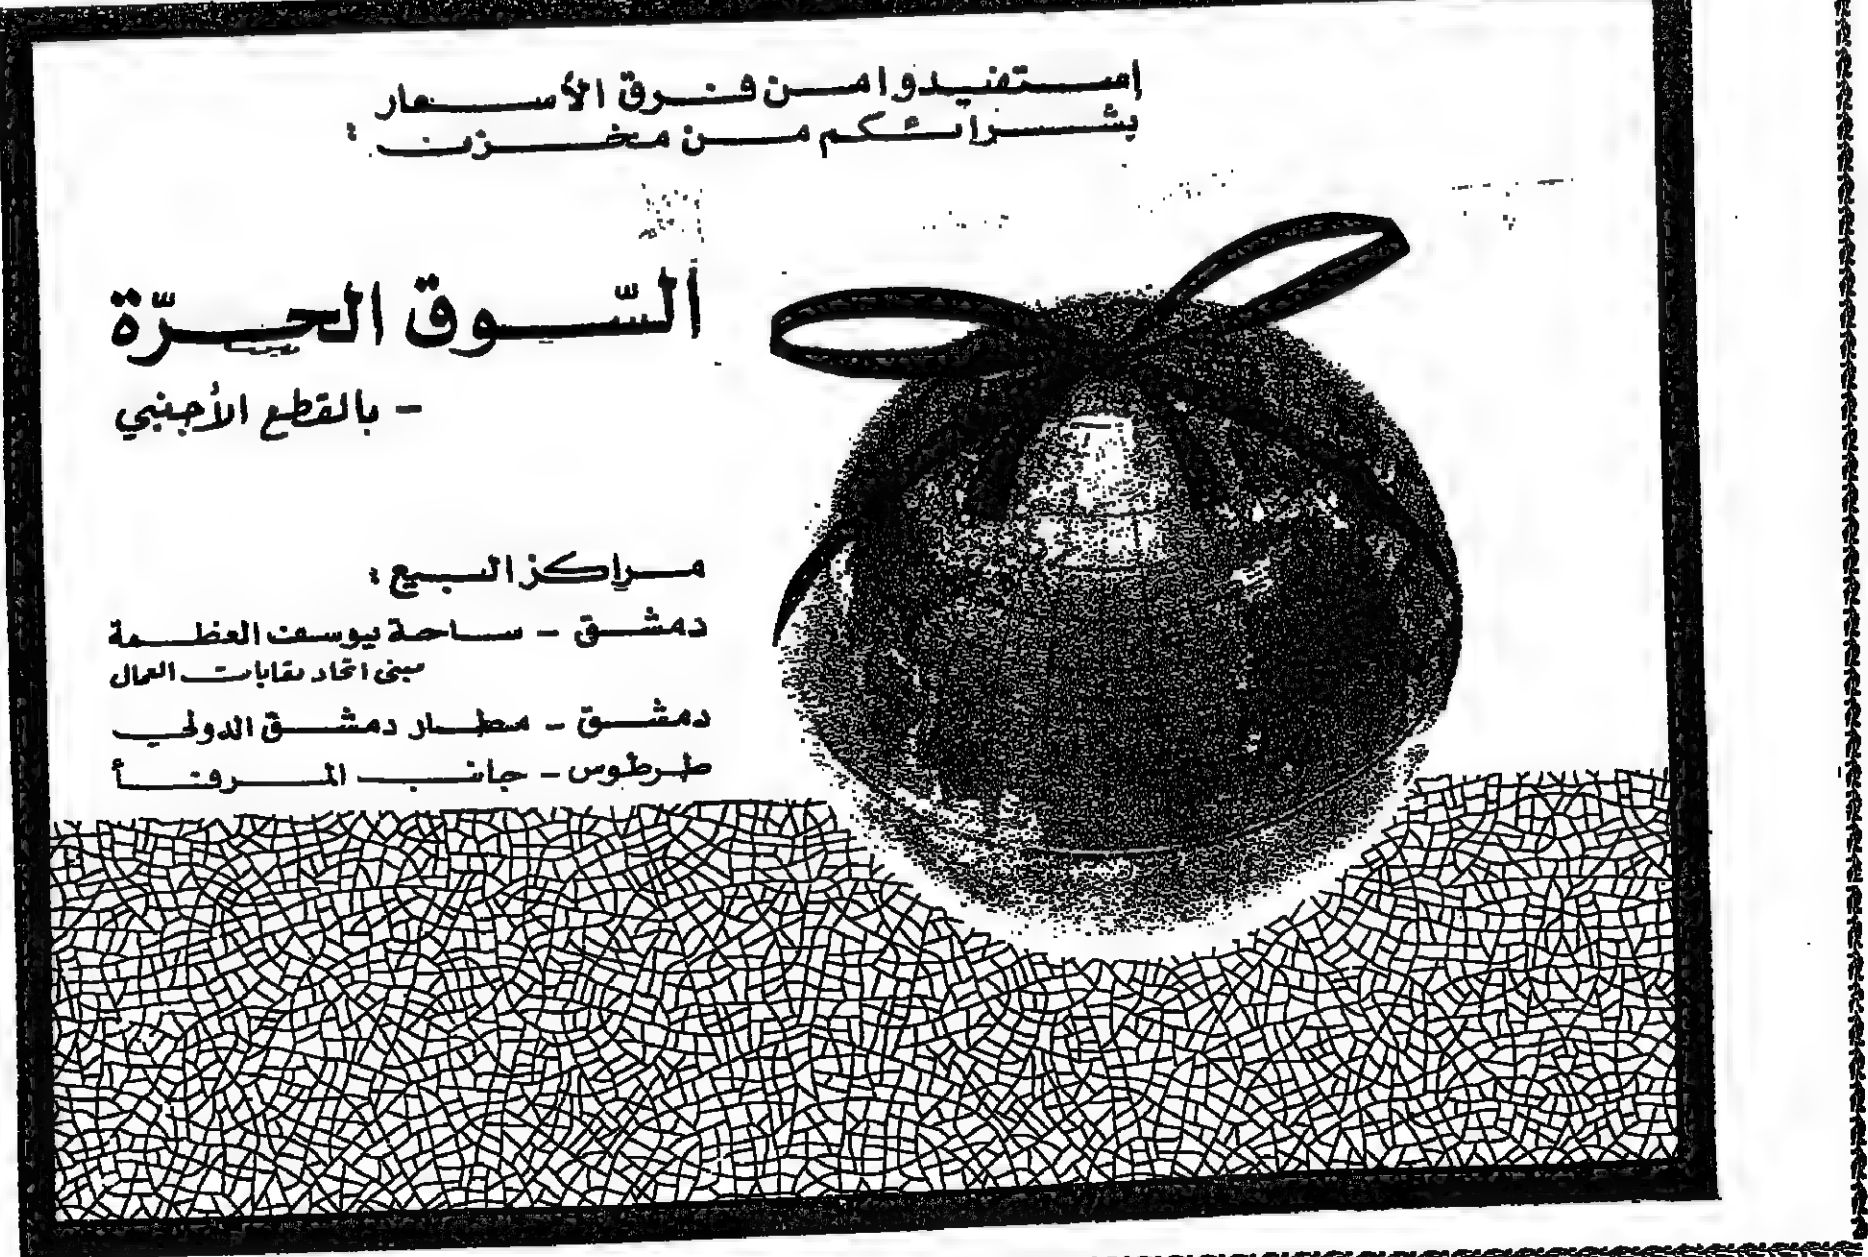 إستفيدوا من فرق الأسعار
بشرائكم من مخزن :
السّوق الحرّة
- بالقطع الأجنبي
مراكز البيع :
دمشق - ساحة يوسف العظمة
مبنى اتحاد نقابات العمال
دمشق - مطار دمشق الدولي
طرطوس - جانب المرفأ